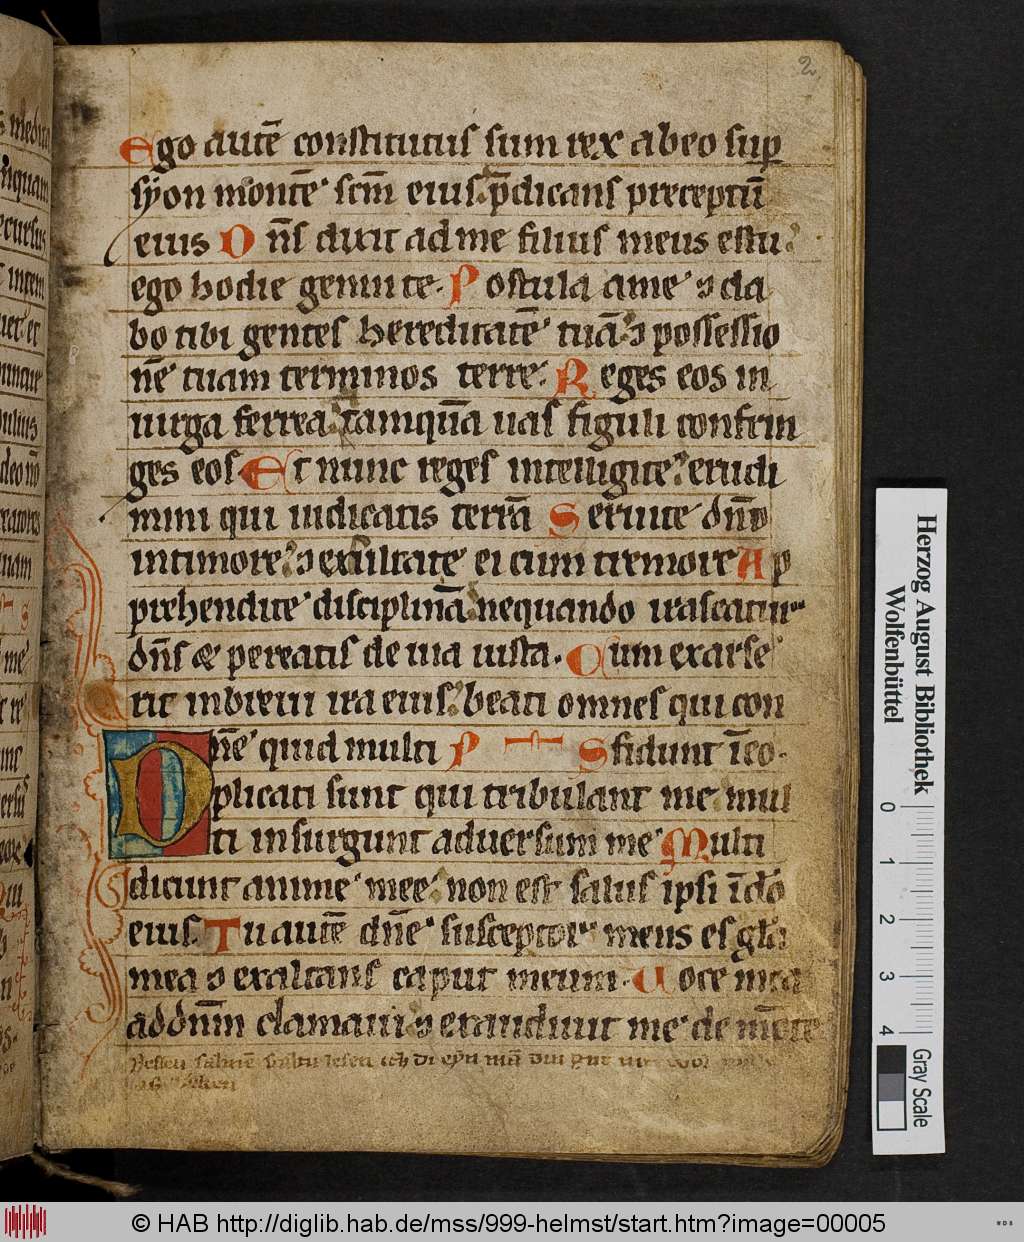 2
Ego autē constitutus sum rex abeo sup
syon montē scm̄ eius p̄dicans preceptū
eius Dn̄s dixit ad me filius meus es tu
ego hodie genui te. Postula a me ɔ da
bo tibi gentes hereditatē tuā ɔ possessio
nē tuam terminos terre. Reges eos in
uirga ferrea tamquā uas figuli confrin
ges eos Et nunc reges intelligite erudi
mini qui iudicatis terrā Seruite dn̄o
in timore ɔ exultate ei cum tremore Ap
prehendite disciplinā nequando irascatur
dn̄s & pereatis de uia iusta. Cum exarse
rit in breui ira eius beati omnes qui con
Dn̄e quid multi P S fidunt ī eo.
plicati sunt qui tribulant me mul
ti insurgunt aduersum me Multi
dicunt anime mee non est salus ipsi ī dō
eius. Tu autē dn̄e susceptor meus es glā
mea ɔ exaltans caput meum. Uoce mea
ad dn̄m clamaui ɔ exaudiuit me de mōte
Herzog August Bibliothek
Wolfenbüttel
0 1 2 3 4
Gray Scale
© HAB http://diglib.hab.de/mss/999-helmst/start.htm?image=00005